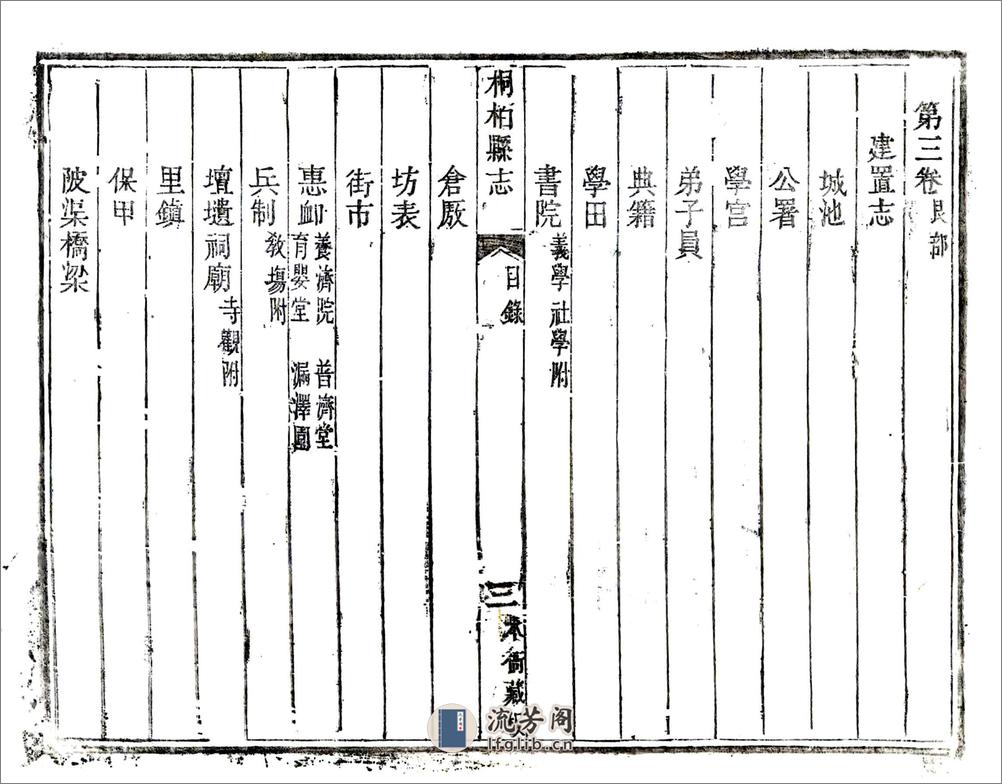 第三卷 艮部
建置志
城池
公署
學宮
弟子員
典籍
學田
書院 義學社學附
桐柏縣志
目錄
三
本衙藏
倉厫
坊表
街市
惠䘏 養濟院 普濟堂
育嬰堂 漏澤園
兵制 教場附
壇壝祠廟 寺觀附
里鎮
保甲
陂渠橋梁
流芳阁
lfglib.cn